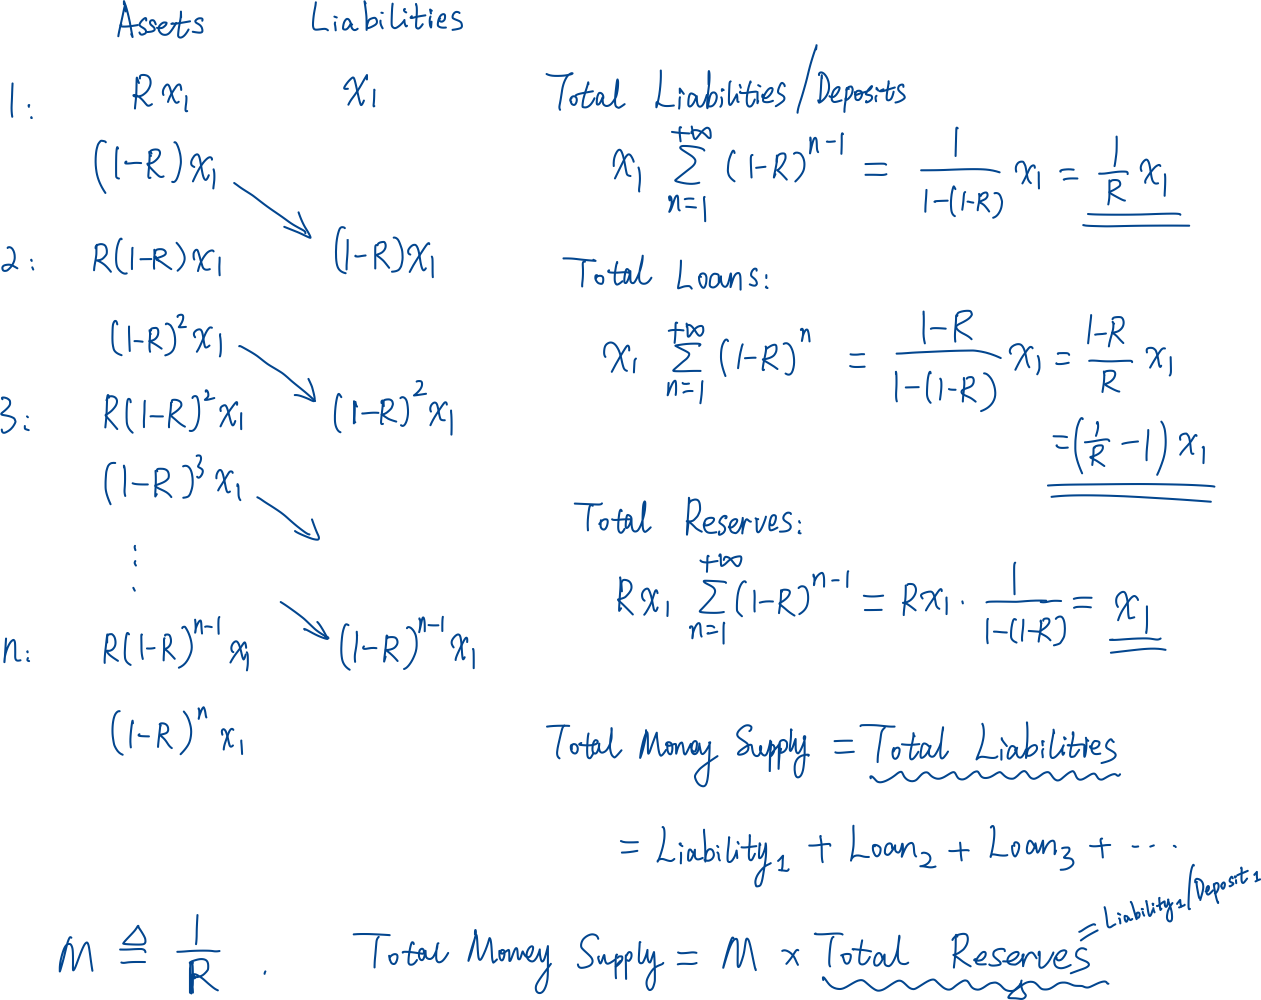 Assets Liabilities
1: Rx₁ x₁
(1-R)x₁
2: R(1-R)x₁ (1-R)x₁
(1-R)²x₁
3: R(1-R)²x₁ (1-R)²x₁
(1-R)³x₁
⋮
n: R(1-R)ⁿ⁻¹x₁ (1-R)ⁿ⁻¹x₁
(1-R)ⁿx₁
Total Liabilities/Deposits
x₁ ∑_{n=1}^{+∞} (1-R)^{n-1} = \frac{1}{1-(1-R)} x₁ = \frac{1}{R} x₁
Total Loans:
x₁ ∑_{n=1}^{+∞} (1-R)^n = \frac{1-R}{1-(1-R)} x₁ = \frac{1-R}{R} x₁
= (\frac{1}{R} - 1) x₁
Total Reserves:
Rx₁ ∑_{n=1}^{+∞} (1-R)^{n-1} = Rx₁ · \frac{1}{1-(1-R)} = x₁
Total Money Supply = Total Liabilities
= Liability₁ + Loan₂ + Loan₃ + ⋯
= Liability₁/Deposit₁
M ≜ \frac{1}{R} . Total Money Supply = M × Total Reserves